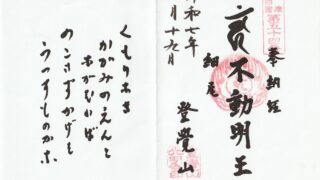 奉納経
不動明王
細尾
登覺山
令和七年
月十九日
第五十四
くもりなき
かがみのえんと
ながむれば
のこさずかげを
うつすものかな